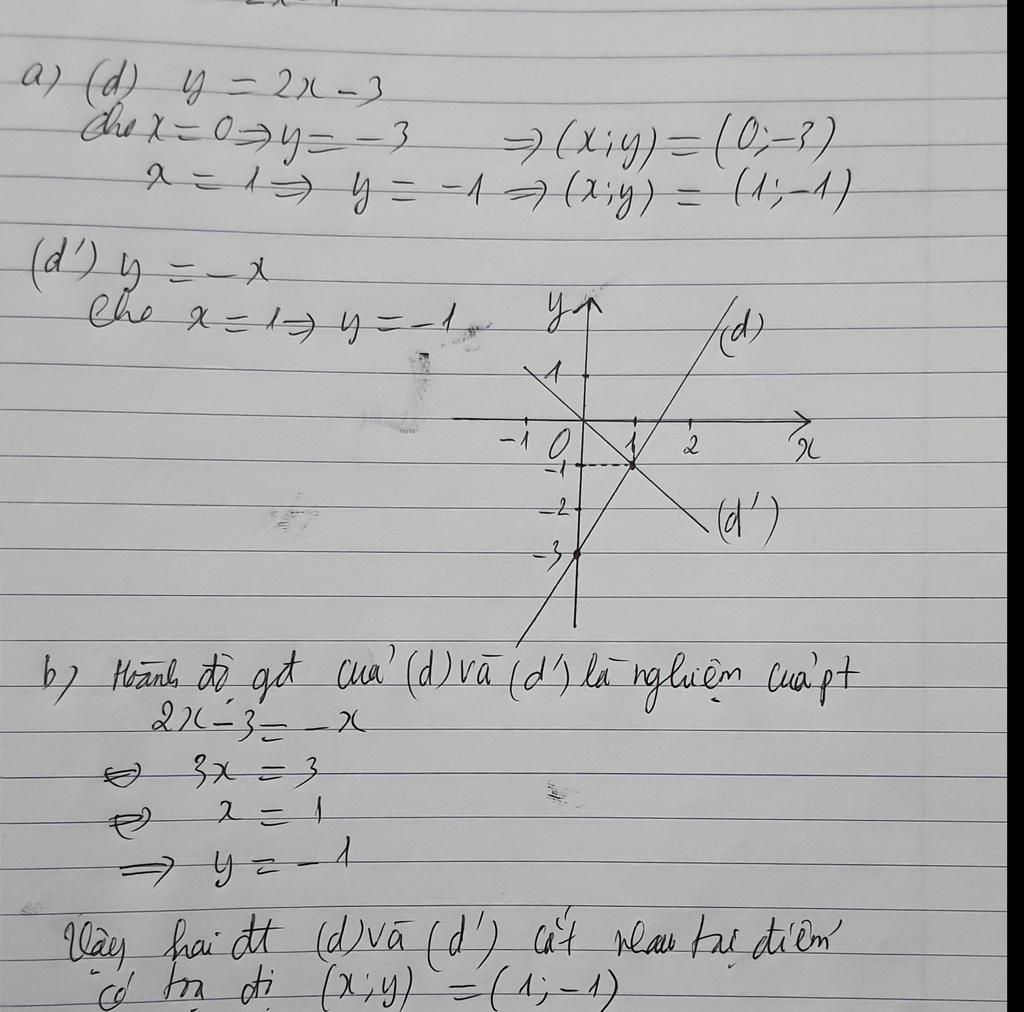 a) (d) y = 2x - 3
Cho x = 0 ⇒ y = -3 ⇒ (x;y) = (0;-3)
x = 1 ⇒ y = -1 ⇒ (x;y) = (1;-1)
(d') y = -x
Cho x = 1 ⇒ y = -1
y
(d)
1
-1 O 1 2 x
-1
-2
(d')
-3
b) Hoành độ gđ của (d) và (d') là nghiệm của pt
2x - 3 = -x
⇔ 3x = 3
⇔ x = 1
⇒ y = -1
Vậy hai đt (d) và (d') cắt nhau tại điểm
có tọa độ (x;y) = (1;-1)